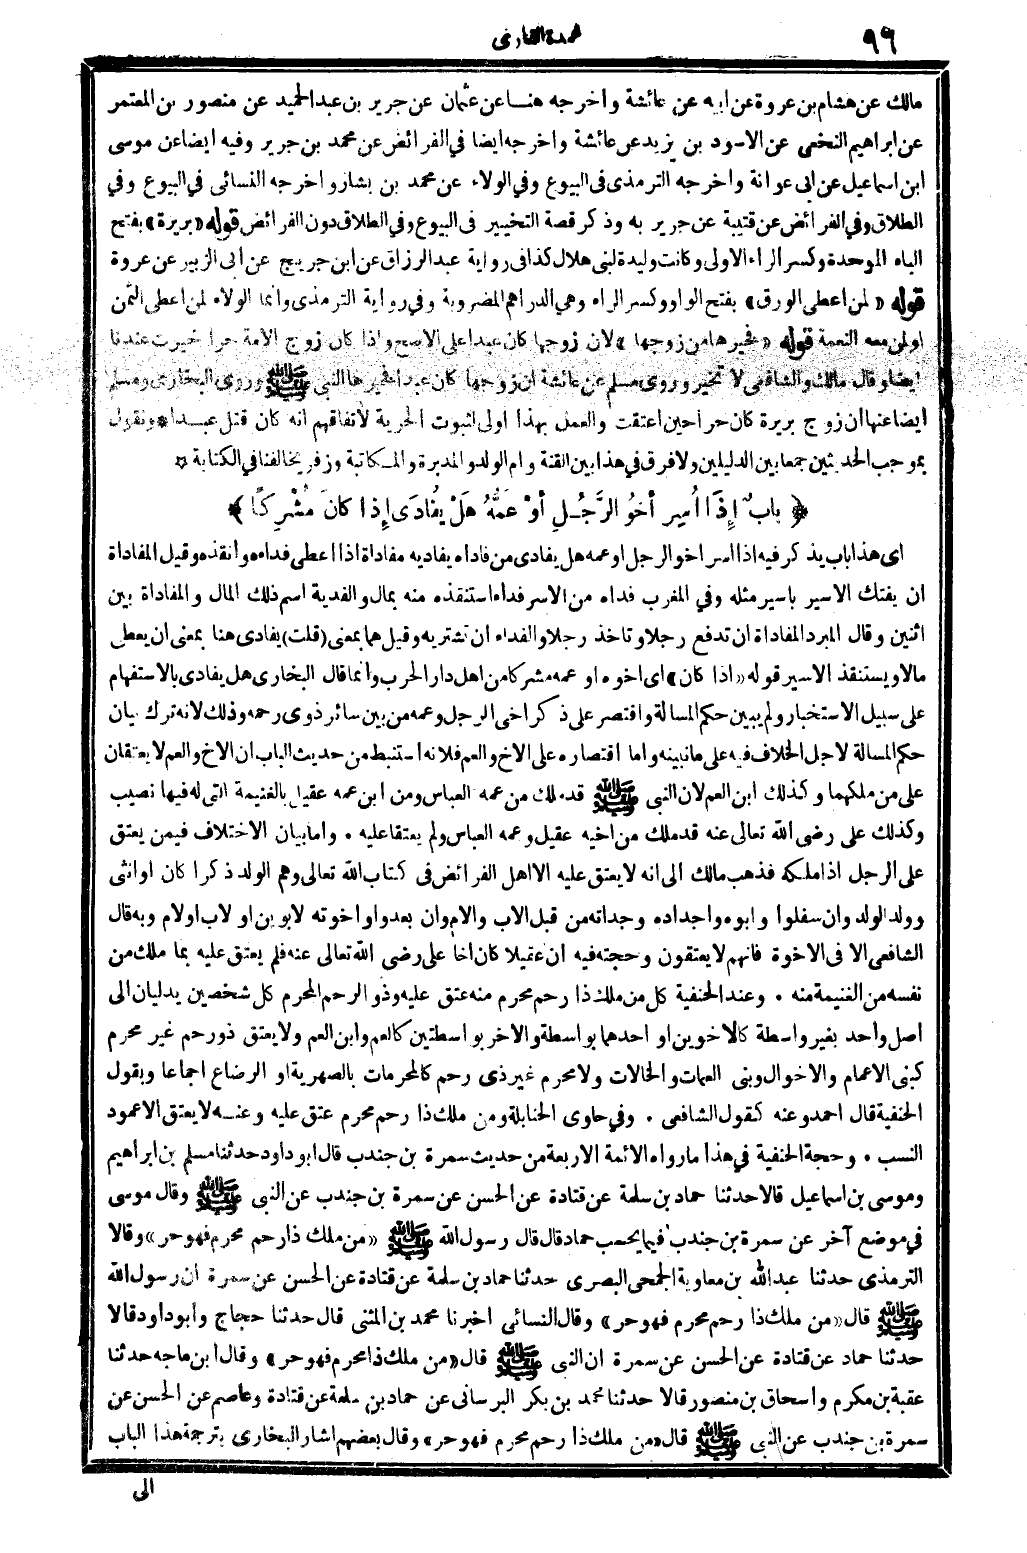 ٩٦
عمدة القارى
مالك عن هشام بن عروة عن ابيه عن عائشة واخرجه هنا عن عثمان عن جرير بن عبد الحميد عن منصور بن المعتمر
عن ابراهيم النخعى عن الاسود بن يزيد عن عائشة واخرجه ايضا في الفرائض عن محمد بن جرير وفيه ايضا عن موسى
ابن اسماعيل عن ابى عوانة واخرجه الترمذى فى البيوع وفي الولاء عن محمد بن بشار واخرجه النسائى في البيوع وفي
الطلاق وفي الفرائض عن قتيبة عن جرير به وذكر قصة التخيير فى البيوع وفي الطلاق دون الفرائض قوله «بريرة» بفتح
الباء الموحدة وكسر الراء الاولى وكانت وليدة لبنى هلال كذا فى رواية عبد الرزاق عن ابن جريج عن ابى الزبير عن عروة
قوله «لمن اعطى الورق» بفتح الواو وكسر الراء وهي الدراهم المضروبة وفي رواية الترمذى وانما الولاء لمن اعطى الثمن
اولمن معه النعمة قوله «فخيرها من زوجها» لان زوجها كان عبدا على الاصح واذا كان زوج الامة حرا خيرت عندنا
ايضا وقال مالك والشافعى لا تخير وروى مسلم عن عائشة ان زوجها كان عبدا فخيرها النبى ﷺ وروى البخارى ومسلم
ايضا عنها ان زوج بريرة كان حرا حين اعتقت والعمل بهذا اولى لثبوت الحرية لاتفاقهم انه كان قبل عبدا * ونقول
بموجب الحديثين جمعا بين الدليلين ولا فرق في هذا بين القنة وام الولد والمدبرة والمكاتبة وزفر يخالفنا في الكتابة ✡
﴿ بابٌ إِذَا أُسِرَ أخُو الرَّجُلِ أوْ عَمُّهُ هَلْ يُفَادَى إِذَا كانَ مُشْرِكًا ﴾
اى هذا باب يذكر فيه اذا اسر اخو الرجل او عمه هل يفادى من فاداه يفاديه مفاداة اذا اعطى فداءه وانقذه وقيل المفاداة
ان يفتك الاسير باسير مثله وفي المغرب فداه من الاسر فداء استنقذه منه بمال والفدية اسم ذلك المال والمفاداة بين
اثنين وقال المبرد المفاداة ان تدفع رجلا وتاخذ رجلا والفداء ان تشتريه وقيل هما بمعنى (قلت) يفادى هنا بمعنى ان يعطى
مالا ويستنقذ الاسير قوله «اذا كان» اى اخوه او عمه مشركا من اهل دار الحرب وانما قال البخارى هل يفادى بالاستفهام
على سبيل الاستخبار ولم يبين حكم المسالة واقتصر على ذكر اخى الرجل وعمه من بين سائر ذوى رحمه وذلك لانه ترك بيان
حكم المسالة لاجل الخلاف فيه على ما نبينه واما اقتصاره على الاخ والعم فلانه استنبط من حديث الباب ان الاخ والعم لا يعتقان
على من ملكهما وكذلك ابن العم لان النبى ﷺ قد ملك من عمه العباس ومن ابن عمه عقيل بالغنيمة التى له فيها نصيب
وكذلك على رضى الله تعالى عنه قد ملك من اخيه عقيل وعمه العباس ولم يعتقا عليه • واما بيان الاختلاف فيمن يعتق
على الرجل اذا ملكه فذهب مالك الى انه لا يعتق عليه الا اهل الفرائض فى كتاب الله تعالى وهم الولد ذكرا كان او انثى
وولد الولد وان سفلوا وابوه واجداده وجداته من قبل الاب والام وان بعدوا واخوته لابوين او لاب او لام وبه قال
الشافعى الا فى الاخوة فانهم لا يعتقون وحجته فيه ان عقيلا كان اخا على رضى الله تعالى عنه فلم يعتق عليه بما ملك من
نفسه من الغنيمة منه • وعند الحنفية كل من ملك ذا رحم محرم منه عتق عليه وذو الرحم المحرم كل شخصين يدليان الى
اصل واحد بغير واسطة كالاخوين او احدهما بواسطة والاخر بواسطتين كالعم وابن العم ولا يعتق ذو رحم غير محرم
كبنى الاعمام والاخوال وبنى العمات والخالات ولا محرم غير ذى رحم كالمحرمات بالصهرية او الرضاع اجماعا وبقول
الحنفية قال احمد وعنه كقول الشافعى • وفي حاوى الحنابلة ومن ملك ذا رحم محرم عتق عليه وعنه لا يعتق الا عمود
النسب • وحجة الحنفية في هذا ما رواه الائمة الاربعة من حديث سمرة بن جندب قال ابو داود حدثنا مسلم بن ابراهيم
وموسى بن اسماعيل قالا حدثنا حماد بن سلمة عن قتادة عن الحسن عن سمرة بن جندب عن النبى ﷺ وقال موسى
في موضع آخر عن سمرة بن جندب فيما يحسب حماد قال قال رسول الله ﷺ «من ملك ذا رحم محرم فهو حر» وقالا
الترمذى حدثنا عبد الله بن معاوية الجمحى البصرى حدثنا حماد بن سلمة عن قتادة عن الحسن عن سمرة ان رسول الله
ﷺ قال «من ملك ذا رحم محرم فهو حر» وقال النسائى اخبرنا محمد بن المثنى قال حدثنا حجاج وابو داود قالا
حدثنا حماد عن قتادة عن الحسن عن سمرة ان النبى ﷺ قال «من ملك ذا محرم فهو حر» وقال ابن ماجه حدثنا
عقبة بن مكرم واسحاق بن منصور قالا حدثنا محمد بن بكر البرسانى عن حماد بن سلمة عن قتادة وعاصم عن الحسن عن
سمرة بن جندب عن النبى ﷺ قال «من ملك ذا رحم محرم فهو حر» وقال بعضهم اشار البخارى بترجمة هذا الباب
الى